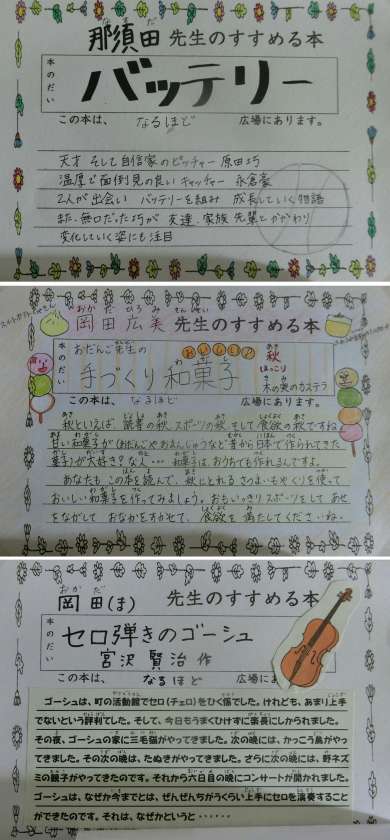 那須田 先生のすすめる本
本のだい
バッテリー
この本は、 なるほど 広場にあります。
天才 そして自信家のピッチャー 原田巧
温厚で面倒見の良いキャッチャー 永倉豪
2人が出会い バッテリーを組み 成長していく物語
また、無口だった巧が 友達、家族、先輩とかかわり
変化していく姿にも注目
岡田広美 先生のすすめる本
おかだひろみ せんせい
本のだい
おだんご先生の おいしい♪
手づくり和菓子
秋
ほっこり
木の実のカステラ
この本は、 なるほど 広場にあります。
秋といえば、読書の秋、スポーツの秋、そして食欲の秋ですね。
甘い和菓子が(おだんごやおまんじゅうなど昔から日本で作られてきた
菓子)が大好き?な人… 和菓子は、おうちでも作れるんですよ。
あなたも この本を読んで、秋にとれるさつまいもやくりを使って
おいしい和菓子を作ってみましょう。おもいっきりスポーツをして あせ
をながして おなかをすかせて、食欲を 満たしてくださいね。
岡田(ま) 先生のすすめる本
おかだ
本のだい
セロ弾きのゴーシュ
宮沢 賢治 作
この本は、 なるほど 広場に
ゴーシュは、町の活動館でセロ(チェロ)をひく係でした。けれども、あまり上手
でないという評判でした。そして、今日もうまくひけずに楽長にしかられました。
その夜、ゴーシュの家に三毛猫がやってきました。次の晩には、かっこう鳥がやっ
てきました。その次の晩は、たぬきがやってきました。さらに次の晩には、野ネズ
ミの親子がやってきたのです。それから六日目の晩にコンサートが開かれました。
ゴーシュは、なぜか今までとは、ぜんぜんちがうくらい上手にセロを演奏すること
ができたのです。それは、なぜかというと・・・・・・